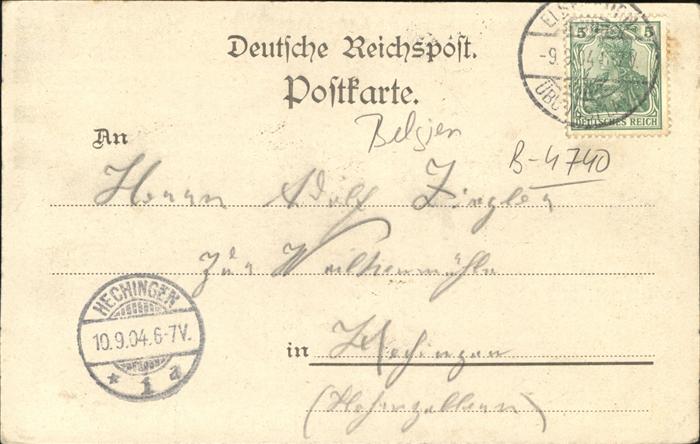 Deutsche Reichspost.
Postkarte.
5 5
DEUTSCHES REICH
-9. 04
An
Belgien
B-4740
Herrn Adolf Ziegler
zur
HECHINGEN
10.9.04.6-7V.
* 1 a
in Hechingen
(Hohenzollern)